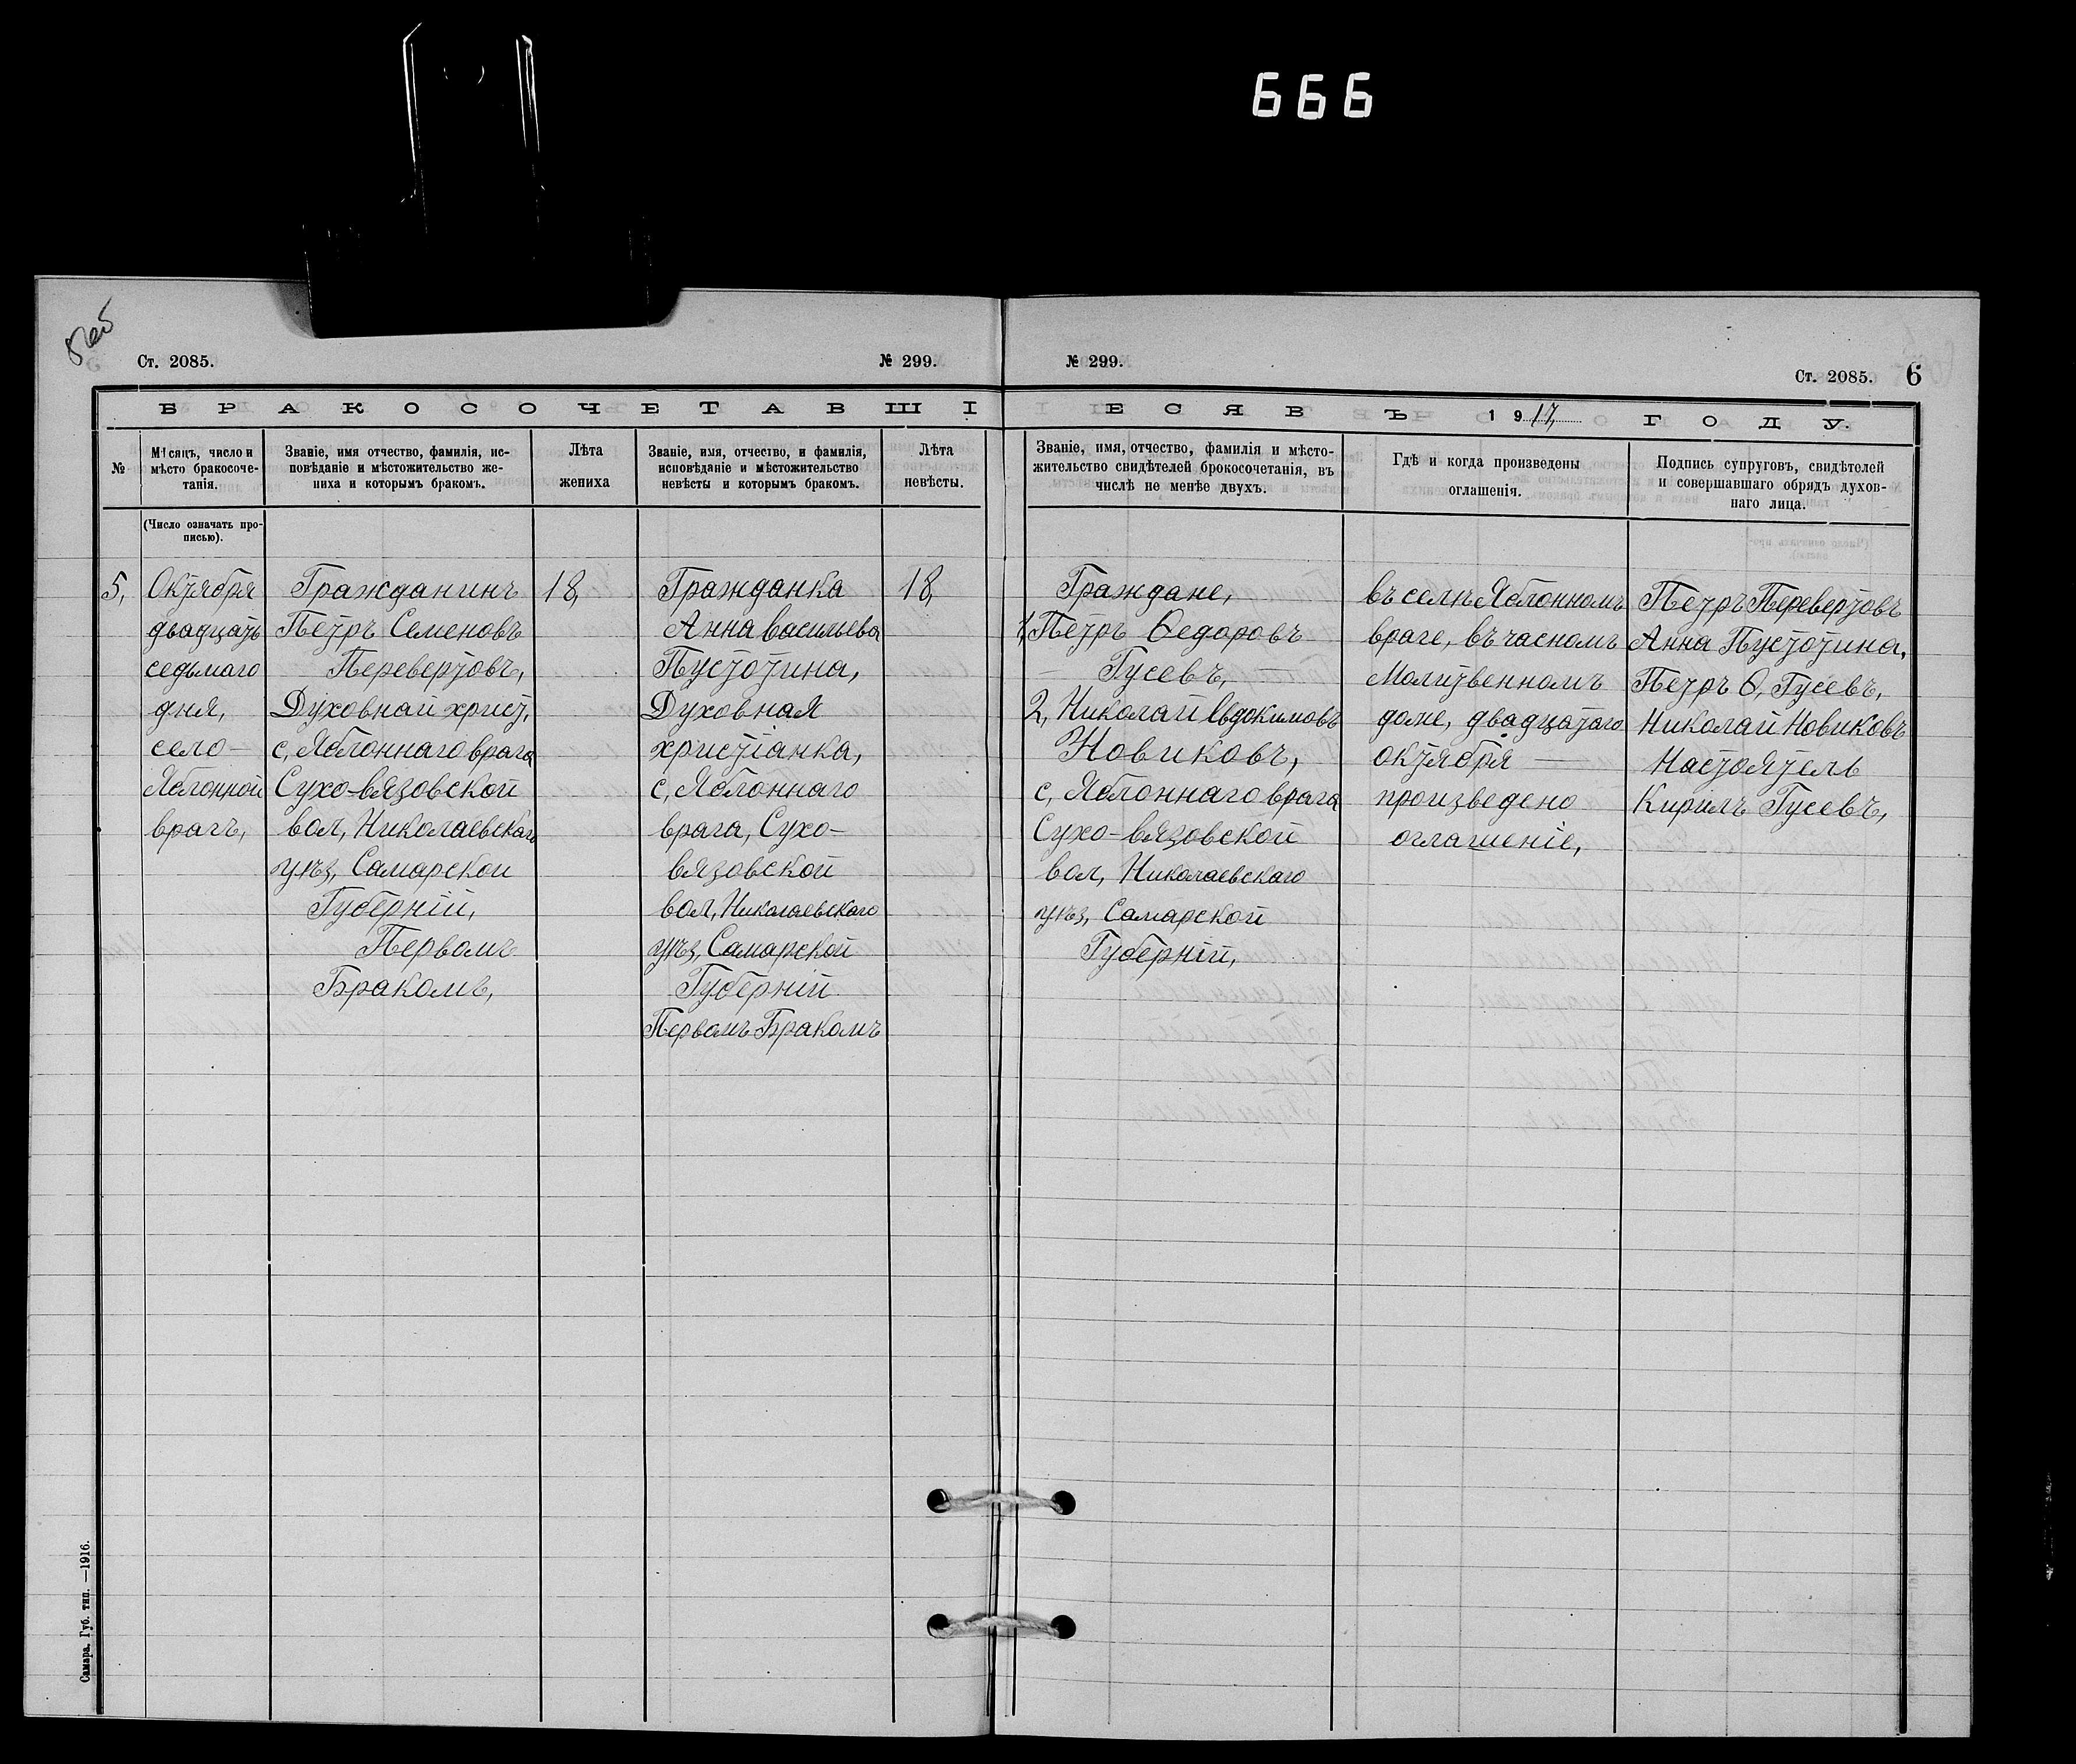 666
Ст. 2085.
№ 299.
№ 299.
Ст. 2085.
6
БРАКОСОЧЕТАВШІ
ІЕСЯ ВЪ 1917, ГОДУ.
№
Мѣсяцъ, число и
мѣсто бракосоче-
танія.
Званіе, имя отчество, фамилія, ис-
повѣданіе и мѣстожительство же-
ниха и которымъ бракомъ.
Лѣта
жениха
Званіе, имя, отчество, и фамилія,
исповѣданіе и мѣстожительство
невѣсты и которымъ бракомъ.
Лѣта
невѣсты.
Званіе, имя, отчество, фамилія и мѣсто-
жительство свидѣтелей брокосочетанія, въ
числѣ не менѣе двухъ.
Гдѣ и когда произведены
оглашенія.
Подпись супруговъ, свидѣтелей
и совершавшаго обрядъ духов-
наго лица.
(Число означать про-
писью).
5,
Октября
двадцать
седьмаго
дня,
село-
Яблонной
врагъ,
Гражданинъ
Петръ Семеновъ
Перевертовъ,
Духовнаи христ,
с, Яблоннаго врага
Сухо-вязовской
вол, Николаевскаго
уѣз, Самарской
Губерній,
Первомъ
Бракомъ,
18,
Гражданка
Анна Васильева
Пустотина,
Духовная
христіанка,
с, Яблоннаго
врага, Сухо-
вязовской
вол, Николаевскаго
уѣз, Самарской
Губерній
Первомъ Бракомъ
18,
Граждане,
1, Петръ Ѳедоровъ
Гусевъ,
2, Николай Евдокимовъ
Новиковъ,
с, Яблоннаго врага
Сухо-вязовской
вол, Николаевскаго
уѣз, Самарской
Губерній,
въ селѣ Яблонномъ
враге, въ часномъ
Молитвенномъ
доме, двадцатаго
октября —
произведено
оглашеніе,
Петръ Перевертовъ
Анна Пустотина,
Петръ Ѳ, Гусевъ,
Николай Новиковъ
Настоятель
Кирилъ Гусевъ,
Самара. Губ. тип. —1916.